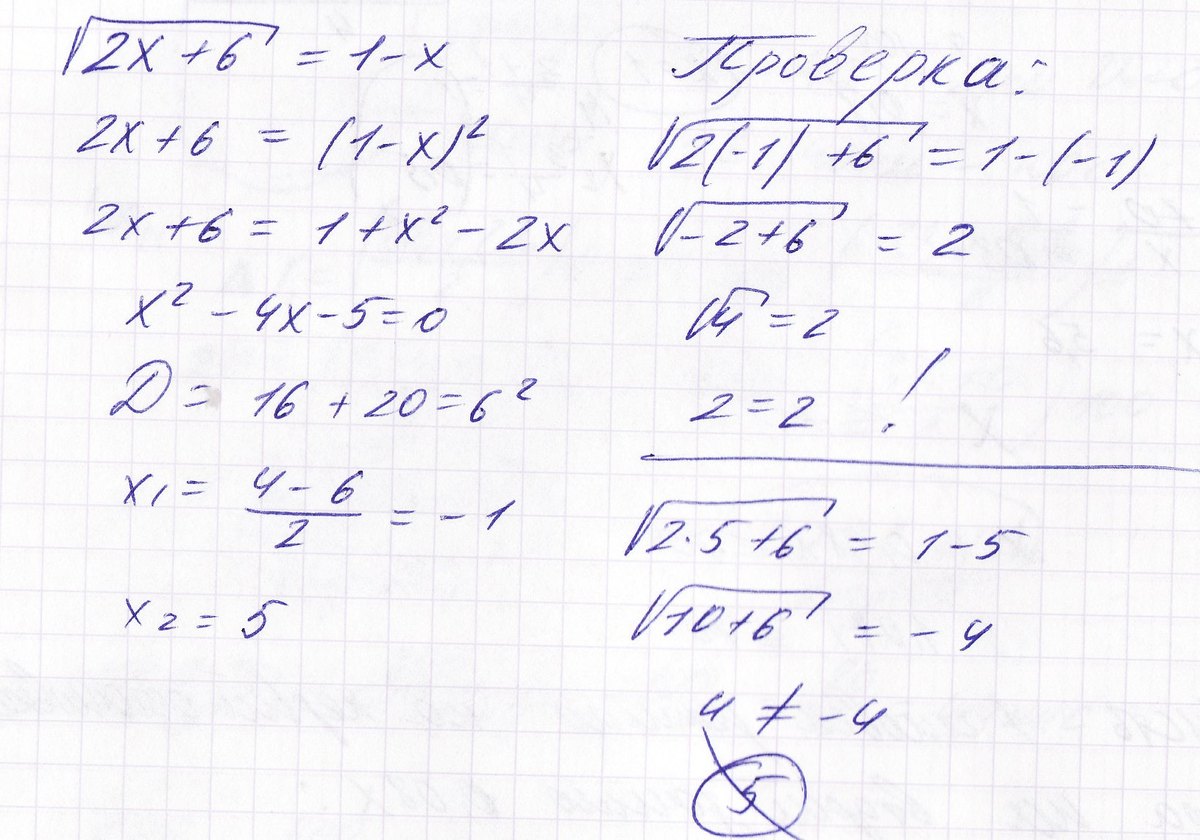 √2x+6 = 1-x
2x+6 = (1-x)²
2x+6 = 1+x²-2x
x²-4x-5=0
D = 16+20=6²
x₁ = 4-6/2 = -1
x₂ = 5
Проверка:
√2(-1)+6 = 1-(-1)
√-2+6 = 2
√4 = 2
2=2 !
√2·5+6 = 1-5
√10+6 = -4
4 ≠ -4
5